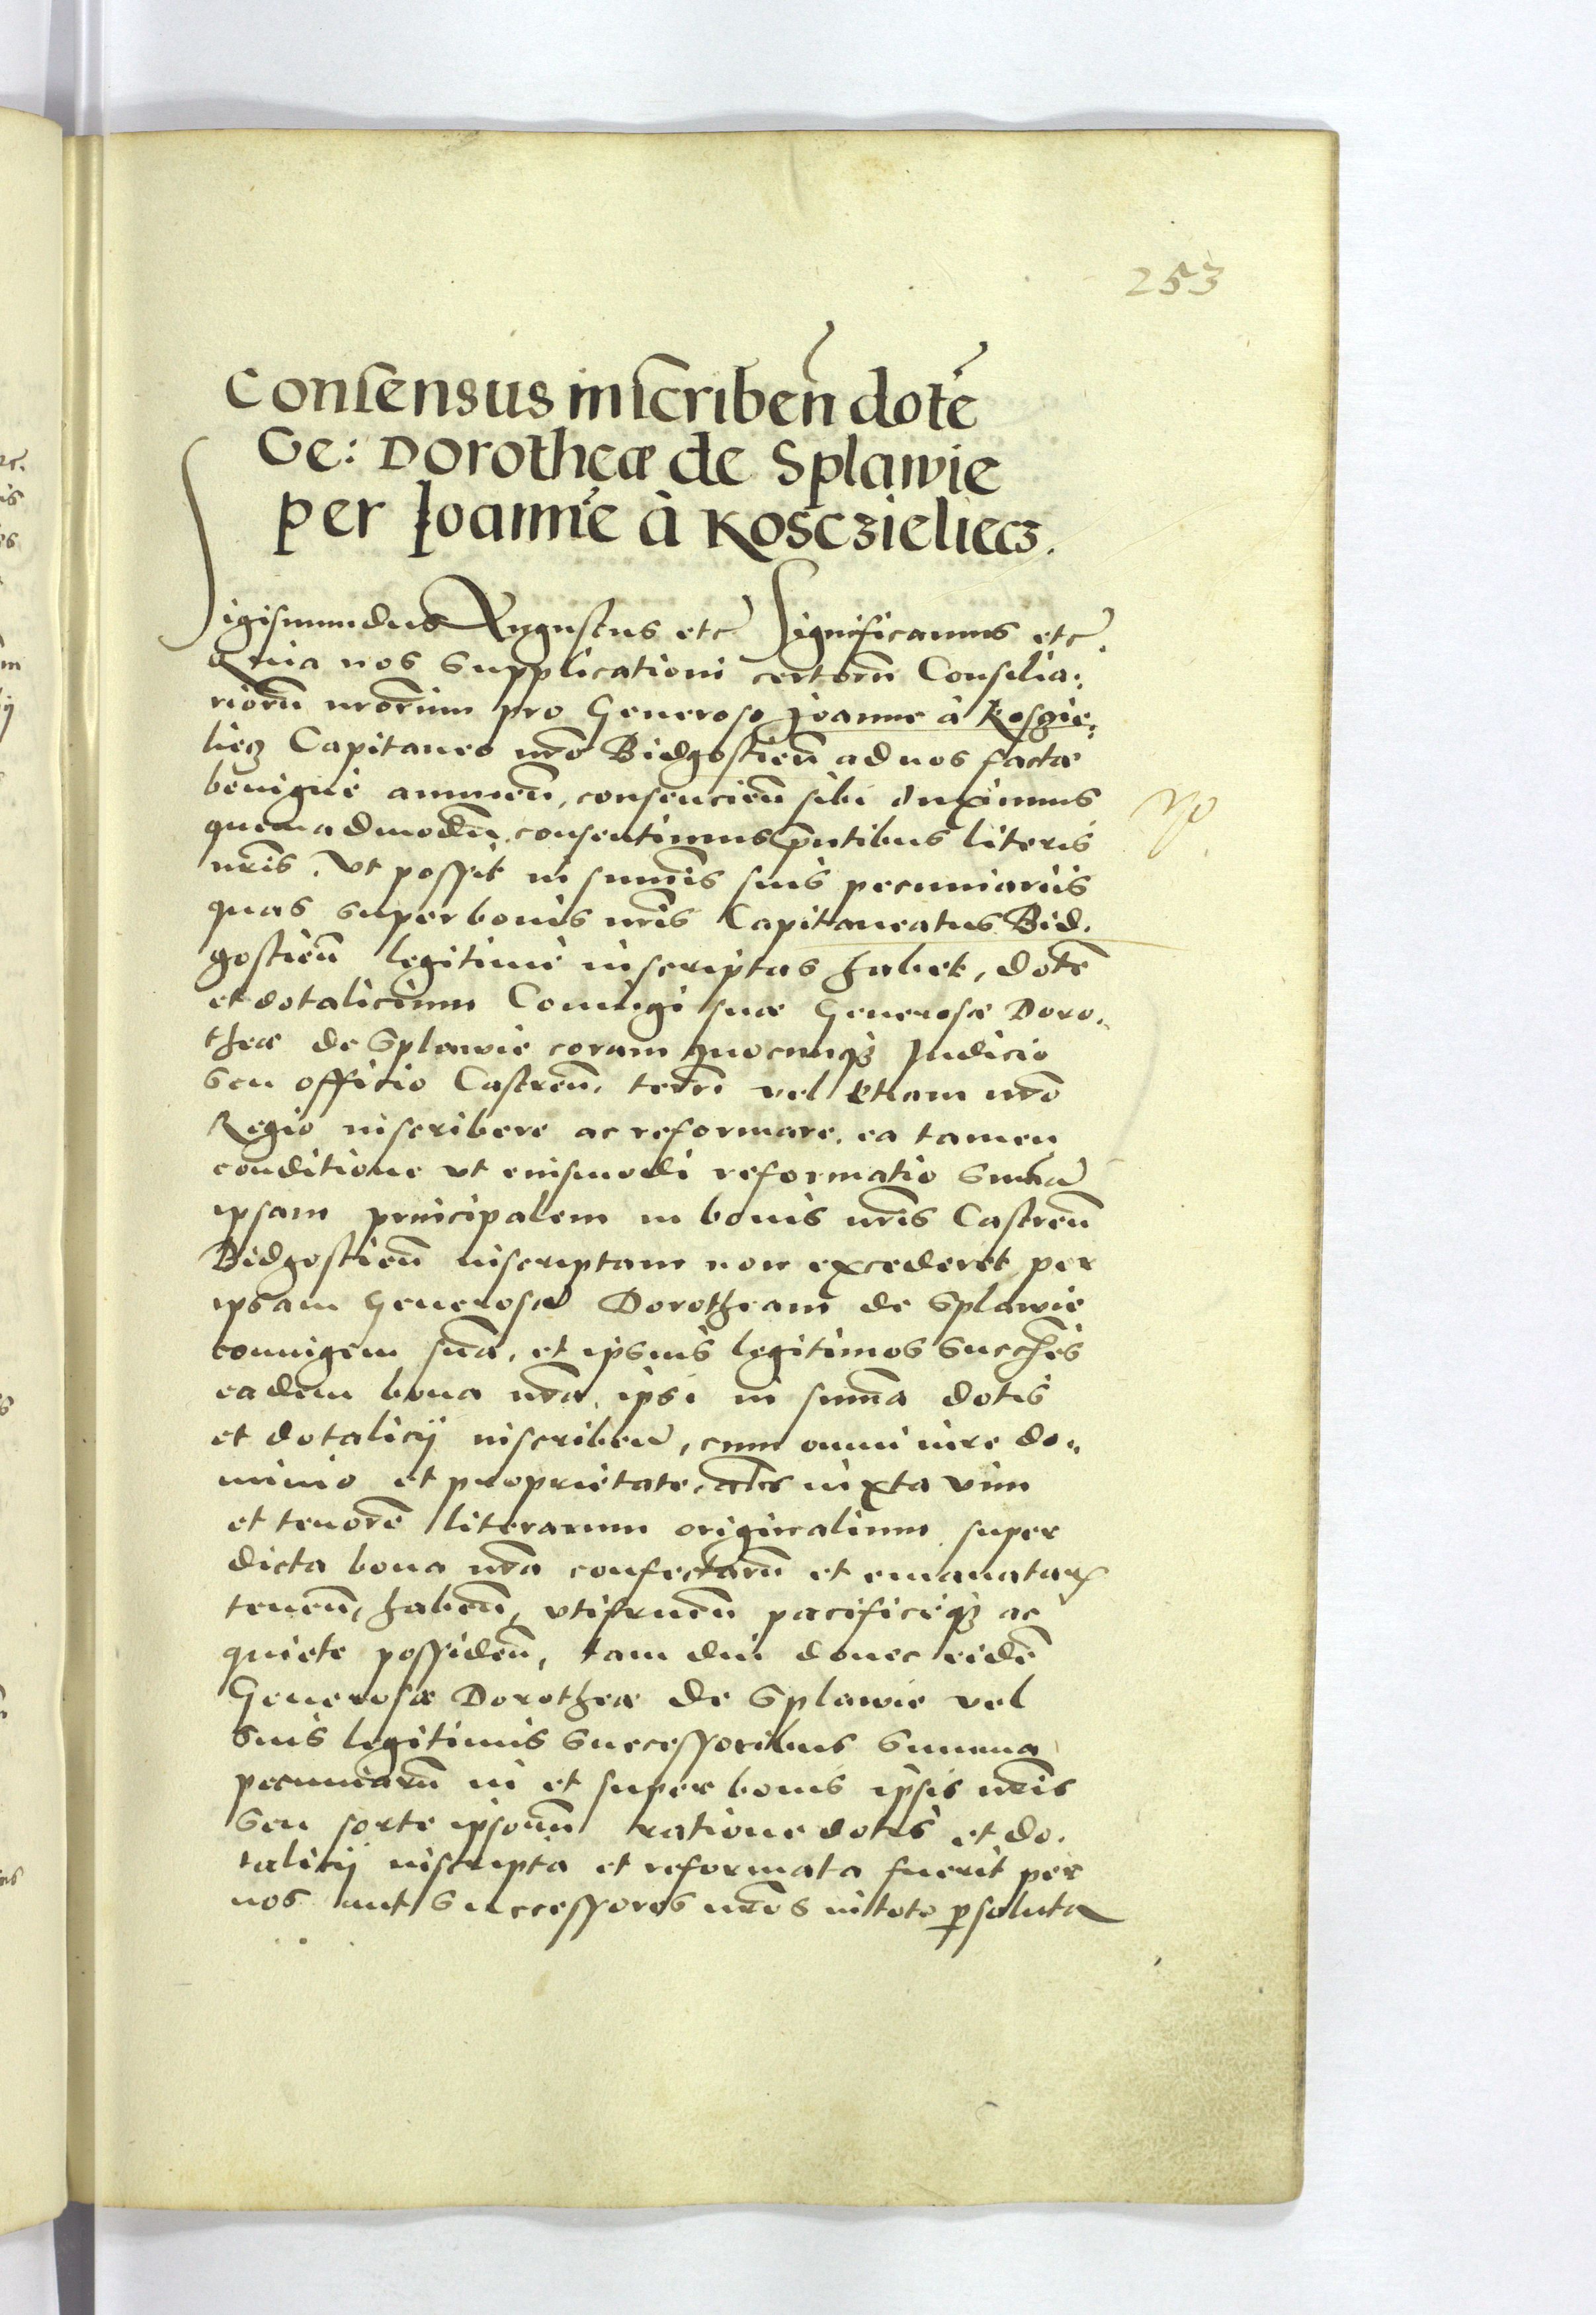 253
Consensus inscriben̄ dotē
Ge: Dorotheæ de Splawie
per Joannē à Kosczieliecz.
Sigismundus Augustus etc Significamus etc.
Quia nos supplicationi certorū Consilia:
riorū nrōrum pro Generoso Joanne à Kosczie:
liecz Capitaneo nrō Bidgostien̄ ad nos factæ
benigne annuen̄, consencien̄ sibi duximus
quemadmodū consentimus pn̄tibus literis
nrīs. Vt possit in sum̄is suis pecuniariis
quas super bonis nrīs Capitaneatus Bid.
gostien̄ legitime inscriptas habet, dotē
et dotalicium Coniugi suæ Generosæ Doro.
theæ de Splawie coram quocunqꝫ Judicio
seu officio Castren̄, terrī vel etiam nrō
Regio inscribere ac reformare, ea tamen
conditione vt eiusmodi reformatio sum̄ā
ipsam principalem in bonis nrīs Castren̄
Bidgostien̄ inscriptam non excederet per
ipsam Generosā Dorotheam de Splawie
coniugem suā, et ipsius legitimos succēs
eadem bona nrā, ipsi in sum̄a dotis
et dotalicij inscriben̄, cum omni iure do:
minio et proprietate, alīs iuxta vim
et tenorē literarum originalium super
dicta bona nrā confectarū et emanataꝝ
tenen̄, haben̄, vtifruen̄ pacificeqꝫ ac
quiete possiden̄, tam diu donec eidē
Generosæ Dorotheæ de Splawie vel
suis legitimis successoribus summa
pecuniarū in et super bonis ipsis nrīs
seu sorte ipsorum ratione dotis et do.
talicij inscripta et reformata fuerit per
nos aut successores nrōs in toto ꝑsoluta